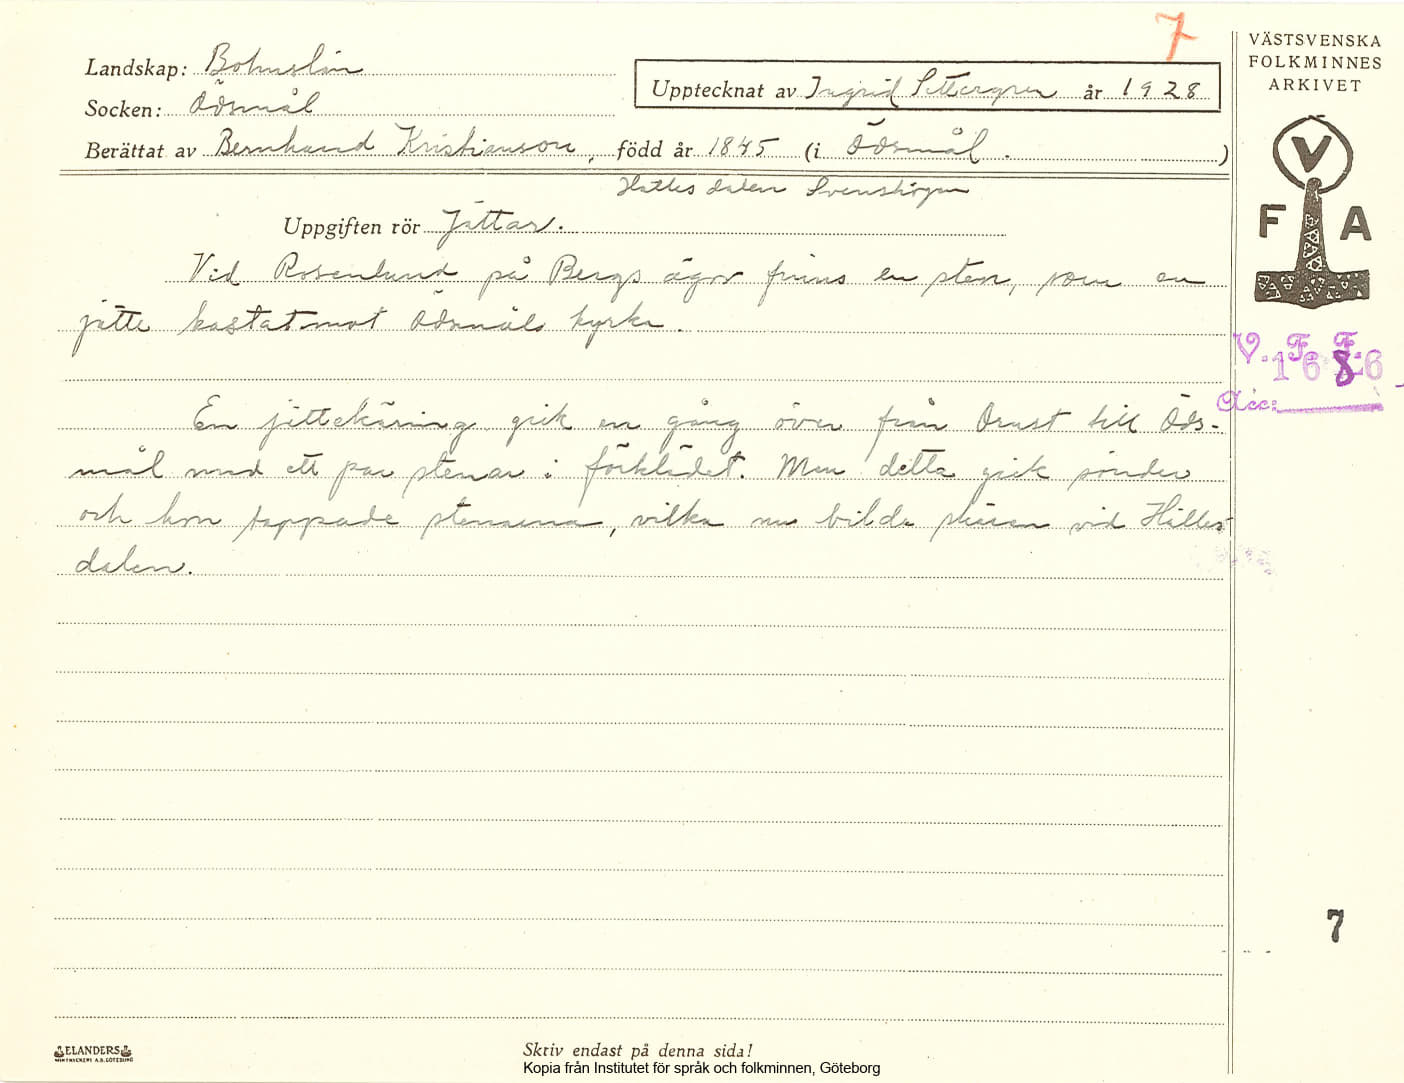 7
VÄSTSVENSKA
FOLKMINNES
ARKIVET
Landskap: Bohuslän
Upptecknat av Ingrid Settergren år 1928
Socken: Ödsmål
Berättat av Bernhard Kristianson, född år 1845 (i Ödsmål. )
V
F A
Hälles dalen Svenskögen
Uppgiften rör Jättar.
Vid Rosenlund på Bergs ägor finns en sten, som en
jätte kastat mot Ödsmåls kyrka.
V. F. F.
1686
Acc:
En jättekäring gick en gång över från Orust till Öds-
mål med ett par stenar i förklädet. Men detta gick sönder
och hon tappade stenarna, vilka nu bilda skären vid Hälles-
dalen.
7
ELANDERS
Skriv endast på denna sida!
Kopia från Institutet för språk och folkminnen, Göteborg